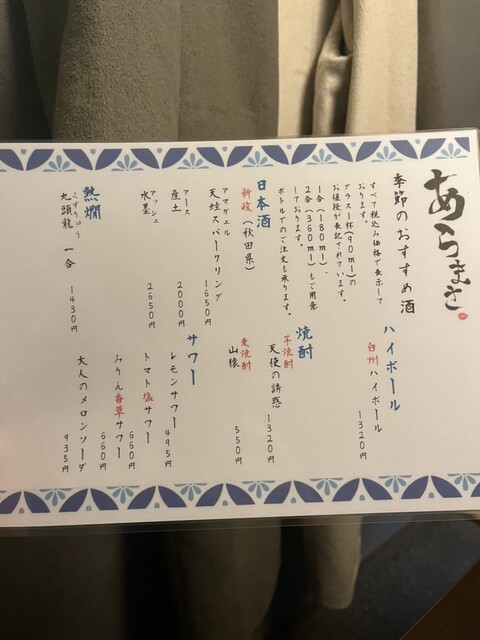 あらまさ
季節のおすすめ酒
すべて税込み価格で表示して
おります。
グラス1杯(90ml)の
お値段が表記されています。
1合(180ml)、
2合(360ml)もご用意
しております。
ボトルでのご注文も承ります。
日本酒
新政(秋田県)
アマガエル
天蛙スパークリング
1650円
アース
産土
2000円
アッシュ
水墨
2650円
熱燗
くずりゅう
九頭龍 一合
1430円
ハイボール
白州ハイボール
1320円
焼酎
芋焼酎
天使の誘惑
1320円
麦焼酎
山猿
550円
サワー
レモンサワー
495円
トマト塩サワー
660円
みりん香草サワー
660円
大人のメロンソーダ
935円